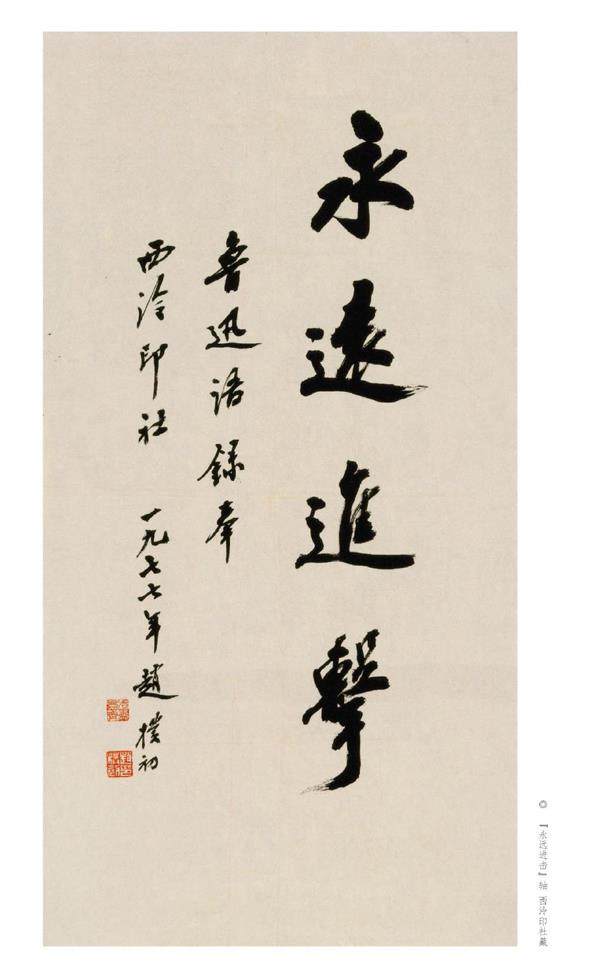 永遠進擊
魯迅語錄奉
西泠印社 一九七七年趙樸初
◎『永远进击』轴 西泠印社藏